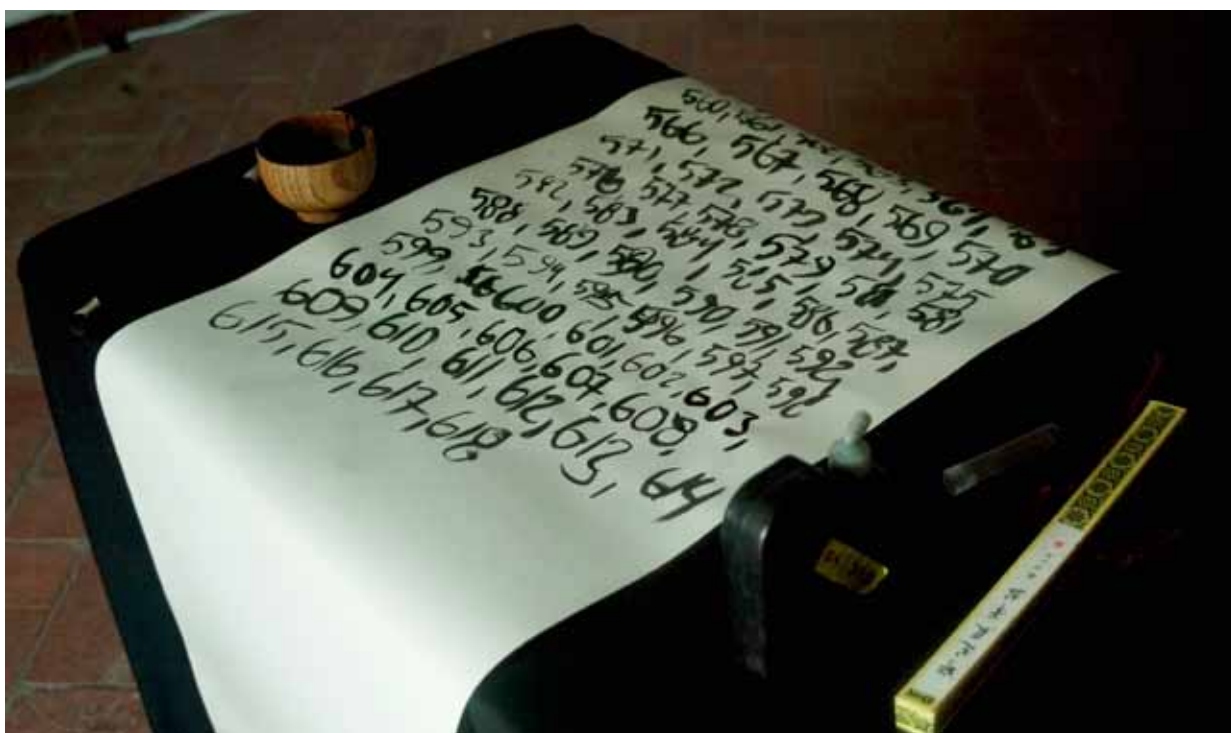 560, 561,
566, 567, 568, 569, 570
571, 572, 573, 574, 575
576 577, 578, 579, 580, 581,
582, 583, 584, 585, 586, 587,
588, 589, 590, 591, 592
593, 594, 595, 596, 597, 598
599, 600, 601, 602, 603,
604, 605, 606, 607, 608,
609, 610, 611, 612, 613, 614
615, 616, 617, 618